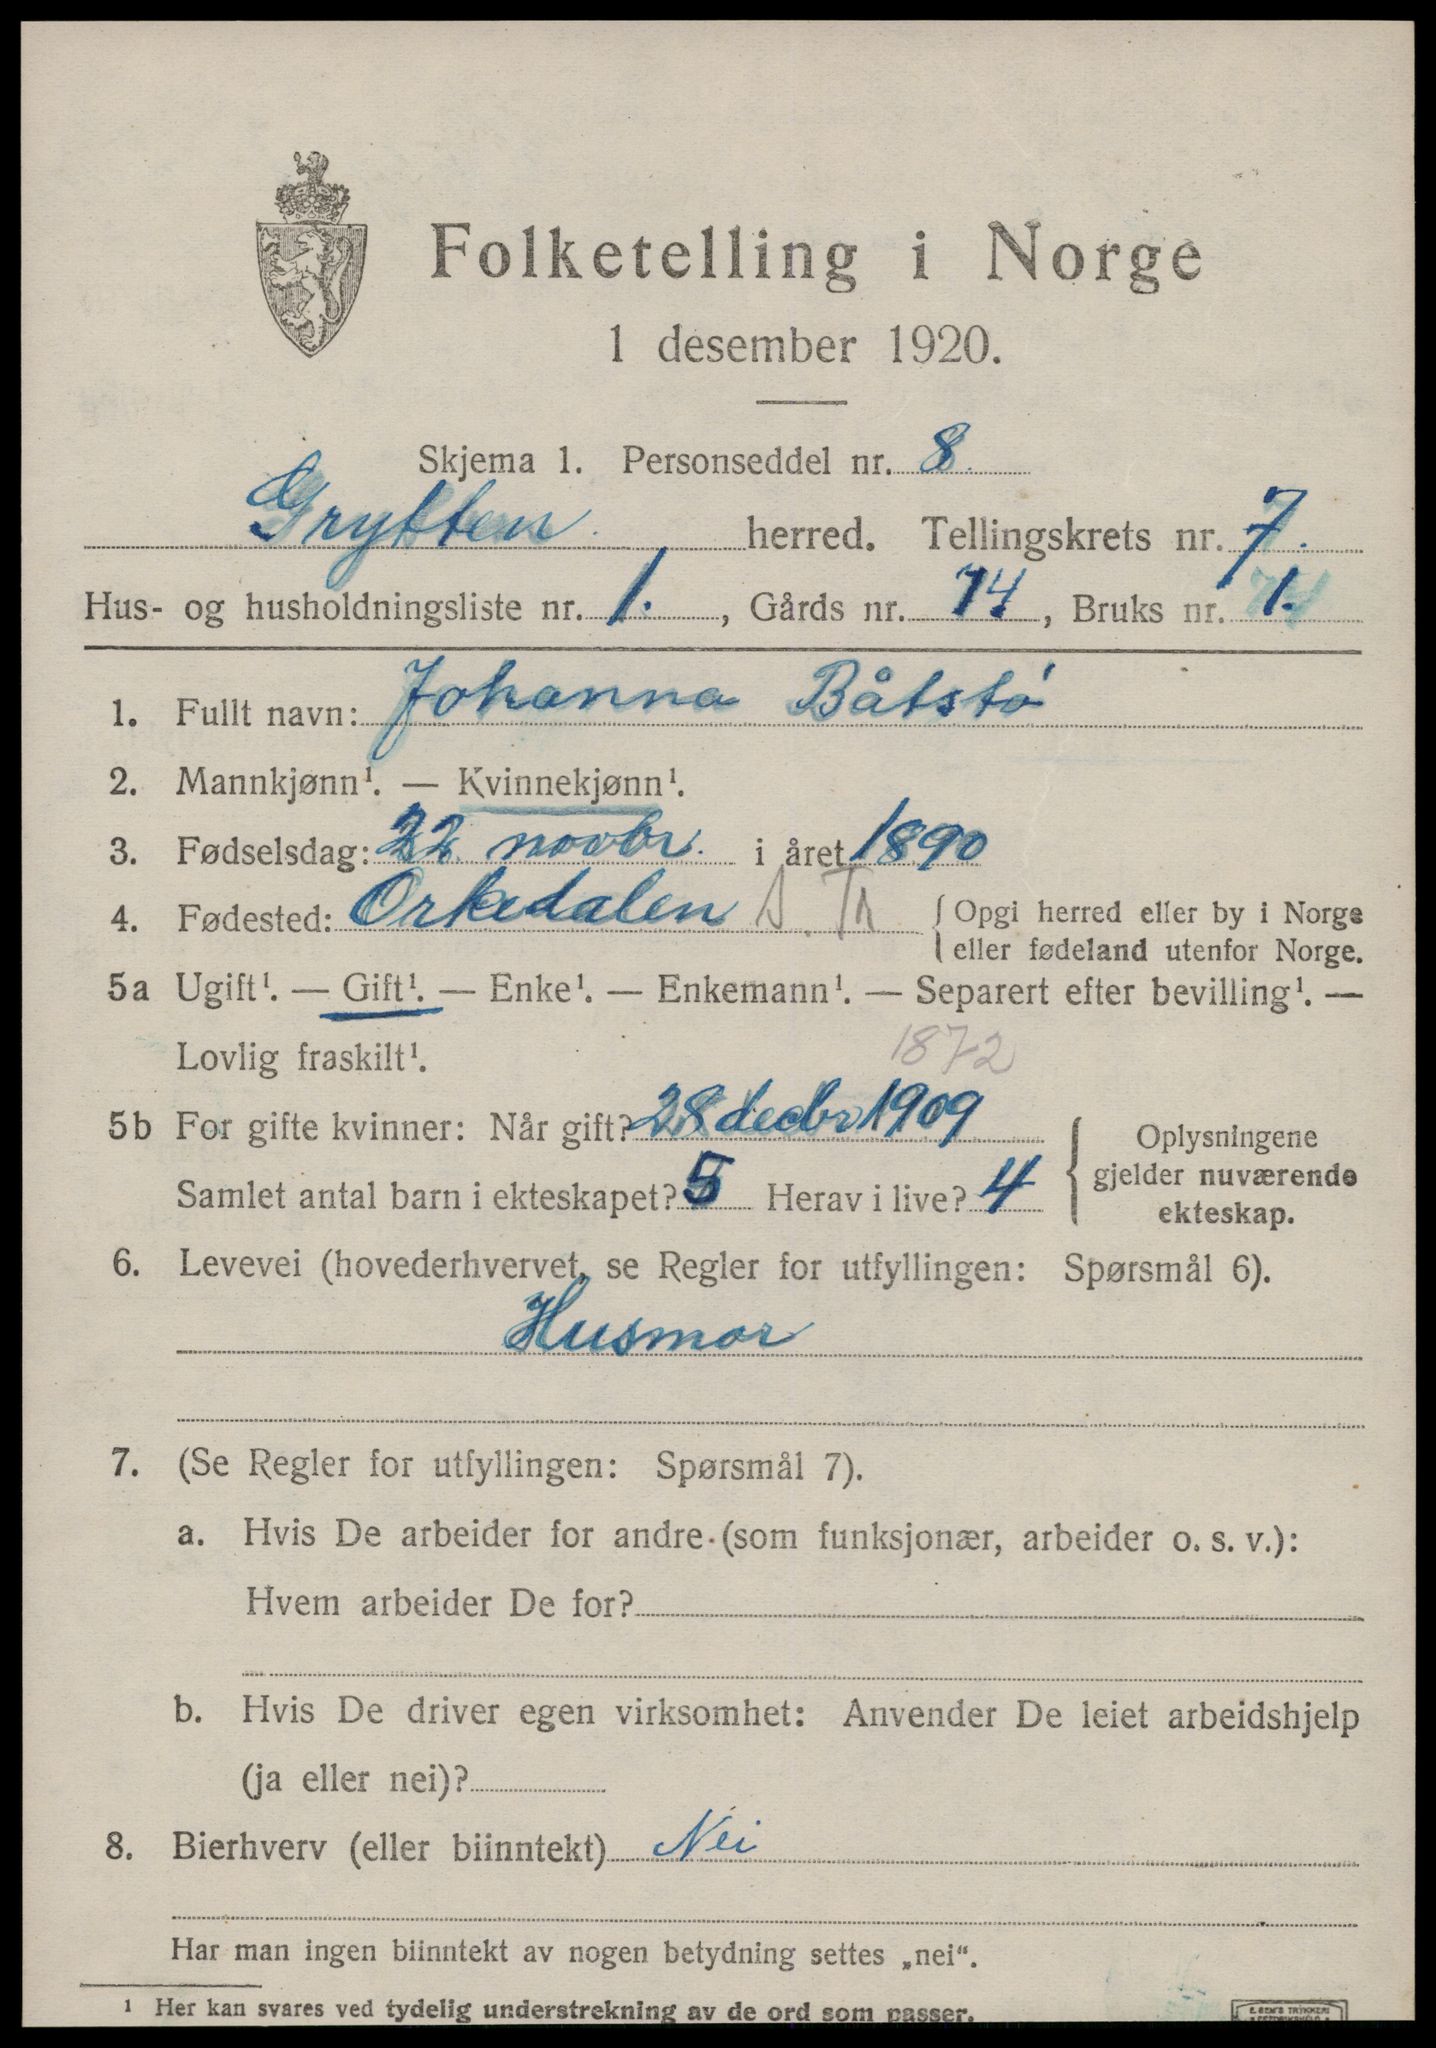 Folketelling i Norge
1 desember 1920.
Skjema 1. Personseddel nr. 8.
Grytten herred. Tellingskrets nr. 7.
Hus- og husholdningsliste nr. 1., Gårds nr. 74, Bruks nr. 1.
1. Fullt navn: Johanna Båtstø
2. Mannkjønn¹. — Kvinnekjønn¹.
3. Fødselsdag: 22 novbr. i året 1890
4. Fødested: Orkedalen S. Tr { Opgi herred eller by i Norge
eller fødeland utenfor Norge.
5a Ugift¹. — Gift¹. — Enke¹. — Enkemann¹. — Separert efter bevilling¹. —
Lovlig fraskilt¹. 1872
5b For gifte kvinner: Når gift? 28 decbr 1909
Samlet antal barn i ekteskapet? 5 Herav i live? 4
{ Oplysningene
gjelder nuværende
ekteskap.
6. Levevei (hovederhvervet, se Regler for utfyllingen: Spørsmål 6).
Husmor
7. (Se Regler for utfyllingen: Spørsmål 7).
a. Hvis De arbeider for andre (som funksjonær, arbeider o. s. v.):
Hvem arbeider De for?
b. Hvis De driver egen virksomhet: Anvender De leiet arbeidshjelp
(ja eller nei)?
8. Bierhverv (eller biinntekt) Nei
Har man ingen biinntekt av nogen betydning settes „nei“.
¹ Her kan svares ved tydelig understrekning av de ord som passer.